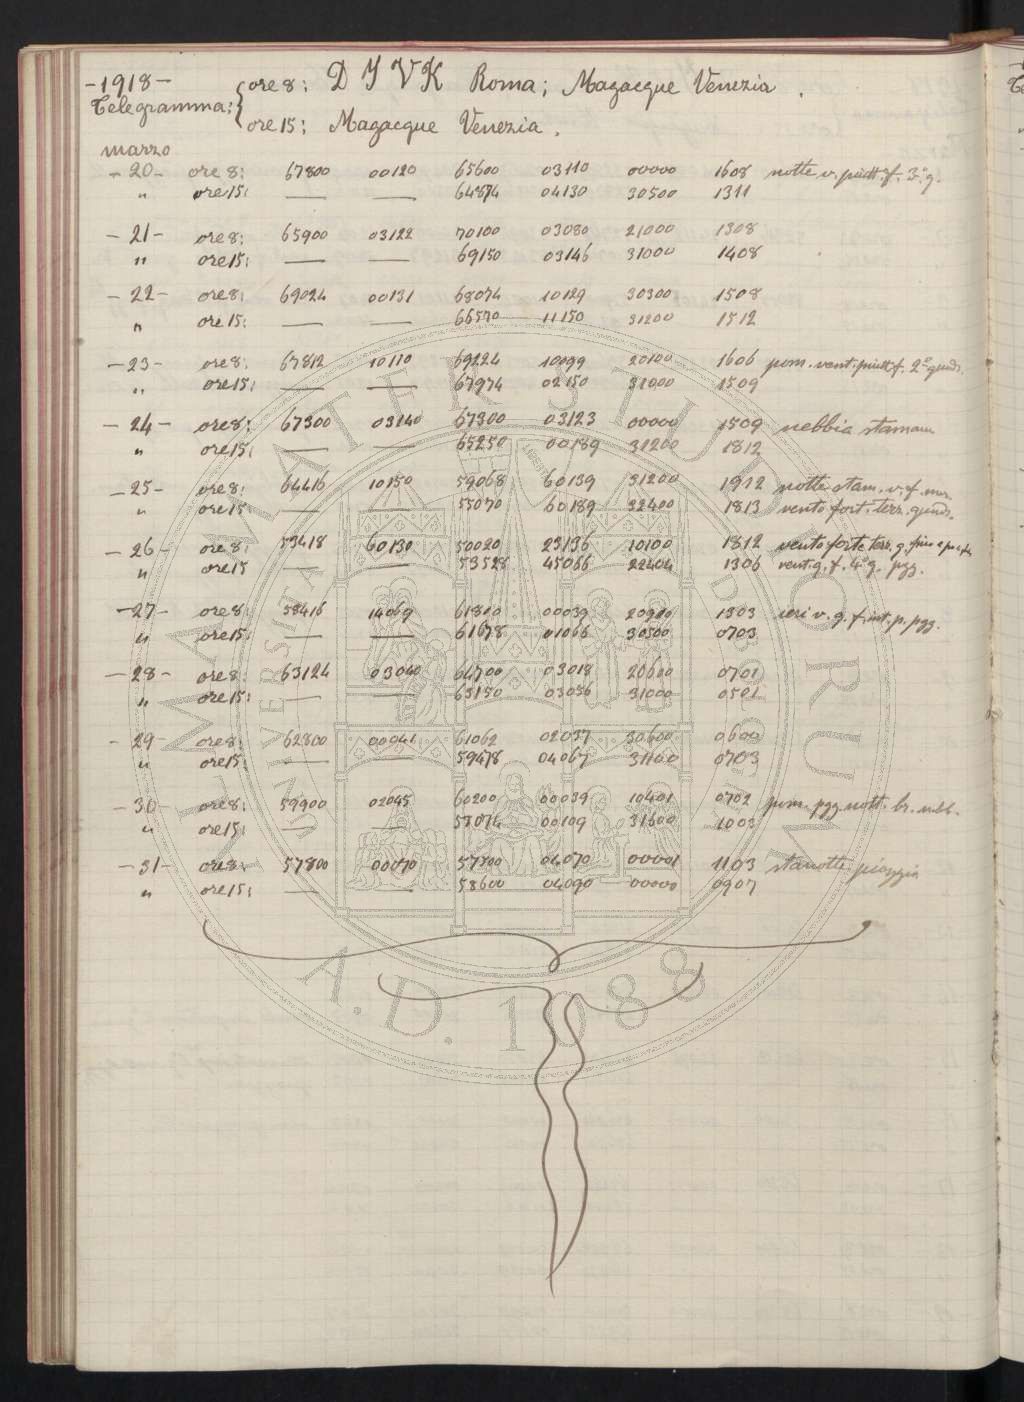 -1918-
Telegramma: { ore 8: D I V K Roma; Magacque Venezia.
ore 15: Magacque Venezia.
marzo
-20- ore 8: 67800 00120 65600 03110 00000 1608 notte v. piutt. f. 3.° g.
" ore 15: — — 64874 04130 30500 1311
-21- ore 8: 65900 03122 70100 03080 21000 1308
" ore 15: — — 69150 03146 31000 1408
-22- ore 8: 69024 00131 68074 10129 30300 1508
" ore 15: — — 66570 11150 31200 1512
-23- ore 8: 67812 10110 69224 10099 20100 1606 pom. vent. piutt. f. 2.° quad.
" ore 15: — — 67974 02150 31000 1509
-24- ore 8: 67300 03140 67300 03123 00000 1509 nebbia stamane
" ore 15: — — 65250 00189 31200 1812
-25- ore 8: 64416 10150 59068 60139 31200 1912 notte stam. v. f.
" ore 15 — — 55070 60189 32400 1813 vento fort. terz. quad.
-26- ore 8: 53418 60130 50020 23136 10100 1812 vento forte terz. q.
" ore 15 — — 53528 45066 22404 1306 vent. g. f. 4° q. pgg.
-27- ore 8: 58416 14069 61800 00039 20900 1303 ieri v. g. f. int. p. pgg.
" ore 15: — — 61678 01066 30500 0703
-28- ore 8: 63124 03040 64700 03018 20600 0701
" ore 15: — — 63150 03056 31000 0501
-29- ore 8: 62800 00041 61062 02037 30600 0600
" ore 15: — — 59478 04067 31100 0703
-30- ore 8: 59900 02045 60200 00039 10401 0702 pom. pgg. nott. br. nebb.
" ore 15: — — 57074 00109 31600 1003
-31- ore 8: 57800 00070 57800 04070 00001 1103 stanotte pioggia
" ore 15: — — 58600 04090 00000 0907
ALMA MATER STUDIORUM
UNIVERSITÀ DI BOLOGNA
A.D. 1088